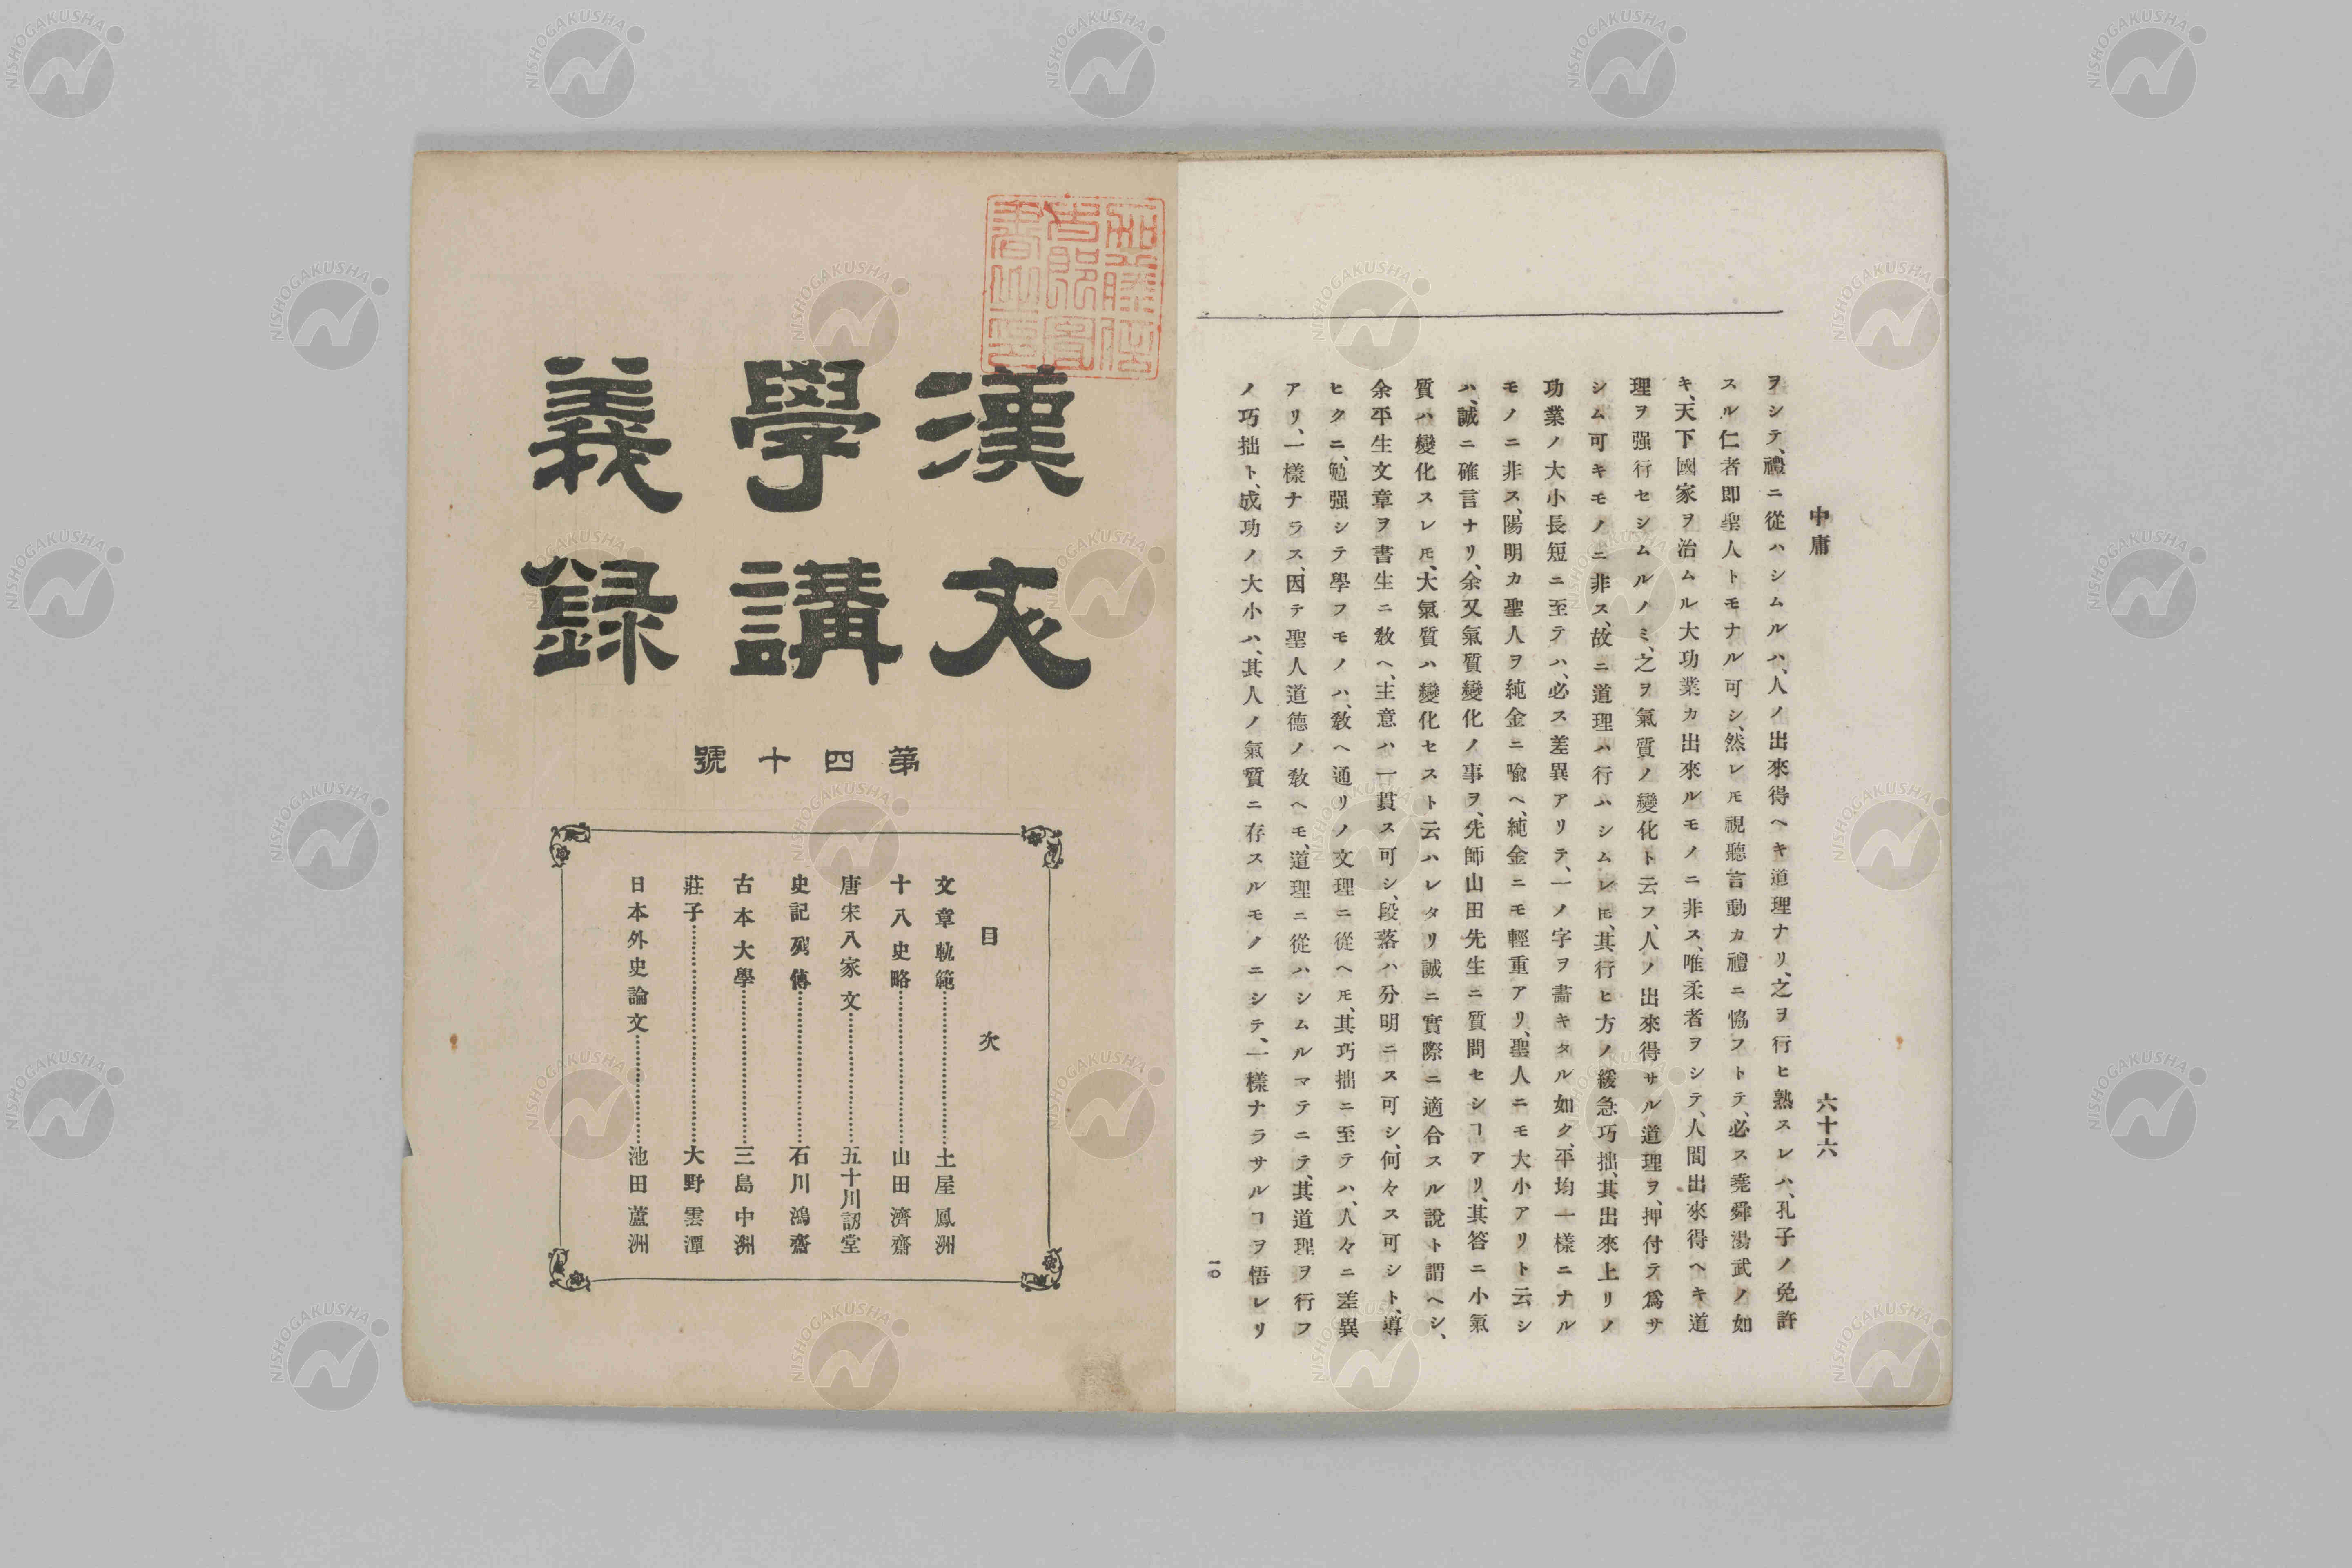 中庸
六十六
ヲシテ、禮ニ從ハシムルハ、人ノ出來得ヘキ道理ナリ、之ヲ行ヒ熟スレハ、孔子ノ免許
スル仁者即聖人トモナル可シ、然レモ視聽言動カ禮ニ恊フトテ、必ス堯舜湯武ノ如
キ、天下國家ヲ治ムル大功業カ出來ルモノニ非ス、唯柔者ヲシテ、人間出來得ヘキ道
理ヲ强行セシムルノミ、之ヲ氣質ノ變化ト云フ、人ノ出來得サル道理ヲ、押付テ爲サ
シム可キモノニ非ス、故ニ道理ハ行ハシムレ𪜈、其行ヒ方ノ緩急巧拙、其出來上リノ
功業ノ大小長短ニ至テハ、必ス差異アリテ、一ノ字ヲ畵キタル如ク、平均一樣ニナル
モノニ非ス、陽明カ聖人ヲ純金ニ喩ヘ、純金ニモ輕重アリ、聖人ニモ大小アリト云シ
ハ、誠ニ確言ナリ、余又氣質變化ノ事ヲ、先師山田先生ニ質問セシヿアリ、其答ニ小氣
質ハ變化スレ𪜈、大氣質ハ變化セスト云ハレタリ誠ニ實際ニ適合スル說ト謂ヘシ、
余平生文章ヲ書生ニ敎ヘ、主意ハ一貫ス可シ、段落ハ分明ニス可シ、何々ス可シト、導
ヒクニ、勉强シテ學フモノハ、敎ヘ通リノ文理ニ從ヘ𪜈、其巧拙ニ至テハ、人々ニ差異
アリ、一樣ナラス、因テ聖人道德ノ敎ヘモ、道理ニ從ハシムルマテニテ、其道理ヲ行フ
ノ巧拙ト、成功ノ大小ハ、其人ノ氣質ニ存スルモノニシテ、一樣ナラサルヿヲ悟レリ
一〇
漢文
學講
義録
第四十號
目次
文章軌範………土屋鳳洲
十八史略………山田濟齋
唐宋八家文………五十川訒堂
史記列傳………石川鴻齋
古本大學………三島中洲
莊子………大野雲潭
日本外史論文………池田蘆洲
NISHOGAKUSHA